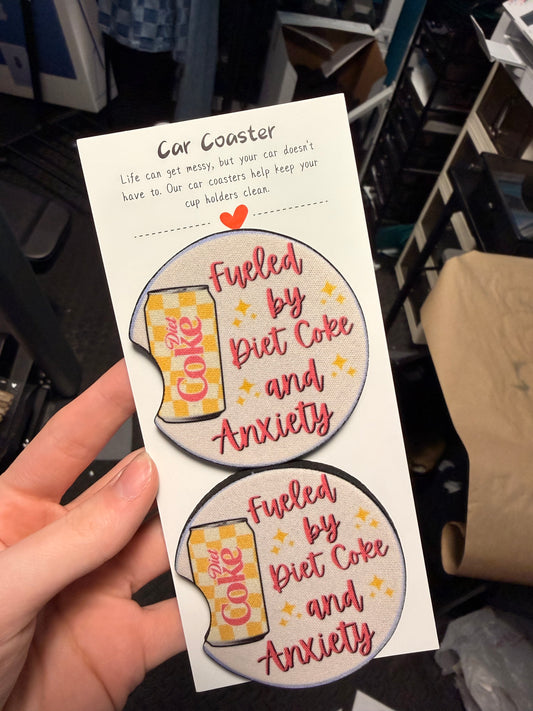 Car Coaster
Life can get messy, but your car doesn't
have to. Our car coasters help keep your
cup holders clean.
Fueled
by
Diet Coke
and
Anxiety
Diet
Coke
Fueled
by
Diet Coke
and
Anxiety
Diet
Coke